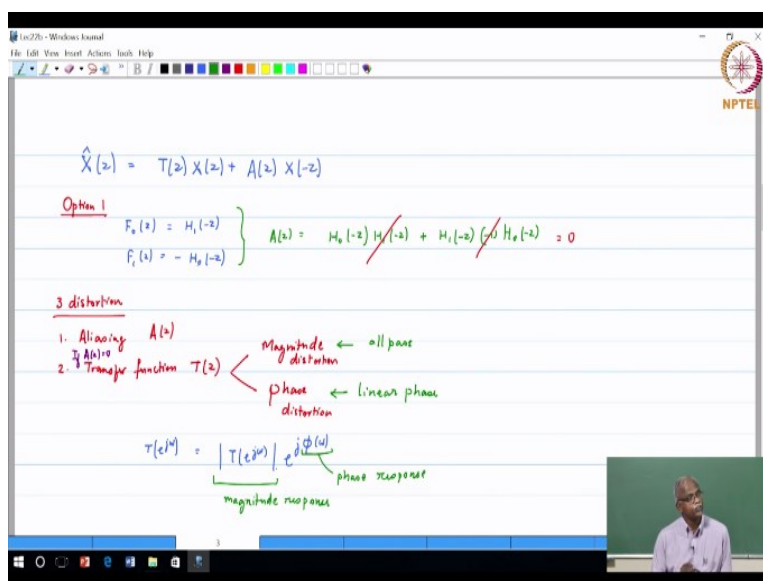 Lec22b - Windows Journal
File Edit View Insert Actions Tools Help
B I
NPTEL
X̂(z) = T(z) X(z) + A(z) X(-z)
Option 1
F₀(z) = H₁(-z)
F₁(z) = - H₀(-z)
A(z) = H₀(-z) H₁(-z) + H₁(-z) (-1) H₀(-z) = 0
3 distortion
1. Aliasing A(z)
If A(z)=0
2. Transfer function T(z)
Magnitude distortion ← all pass
phase distortion ← linear phase
T(e^jω) = |T(e^jω)| e^jϕ(ω)
phase response
magnitude response
3